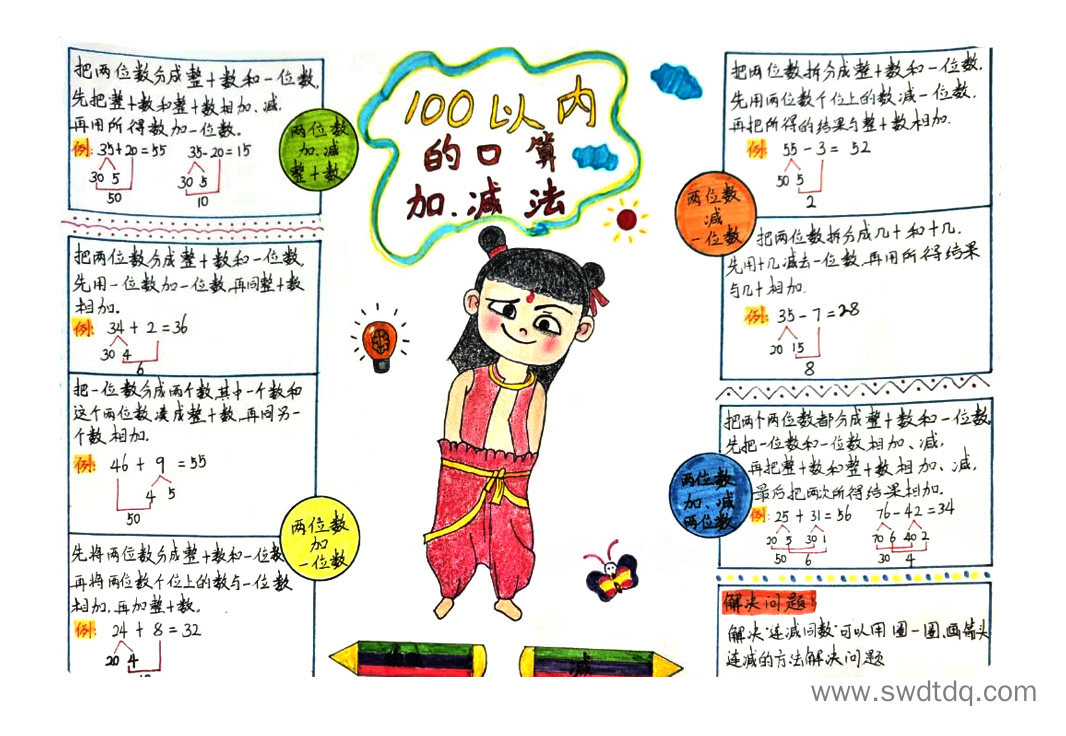 把两位数分成整十数和一位数,
先把整十数和整十数相加、减,
再用所得数加一位数。
例: 35+20=55 35-20=15
30 5 30 5
50 10
两位数
加、减
整十数
把两位数分成整十数和一位数,
先用一位数加一位数,再同整十数
相加。
例: 34+2=36
30 4
6
把一位数分成两个数,其中一个数和
这个两位数凑成整十数,再同另一
个数相加。
例: 46+9=55
4 5
50
两位数
加
一位数
先将两位数分成整十数和一位数
再将两位数个位上的数与一位数
相加,再加整十数。
例: 24+8=32
20 4
100以内
的口算
加、减法
减
把两位数拆分成整十数和一位数,
先用两位数个位上的数减一位数,
再把所得的结果与整十数相加.
例: 55-3=52
50 5
2
两位数
减
一位数
把两位数拆分成几十和十几,
先用十几减去一位数,再用所得结果
与几十相加.
例: 35-7=28
20 15
8
把两个两位数都分成整十数和一位数,
先把一位数和一位数相加、减,
再把整十数和整十数相加、减,
最后把两次所得结果相加。
两位数
加、减
两位数
例: 25+31=56 76-42=34
20 5 30 1 70 6 40 2
50 6 30 4
解决问题:
解决"连减同数"可以用圈一圈、画箭头
连减的方法解决问题
www.swdtdq.com